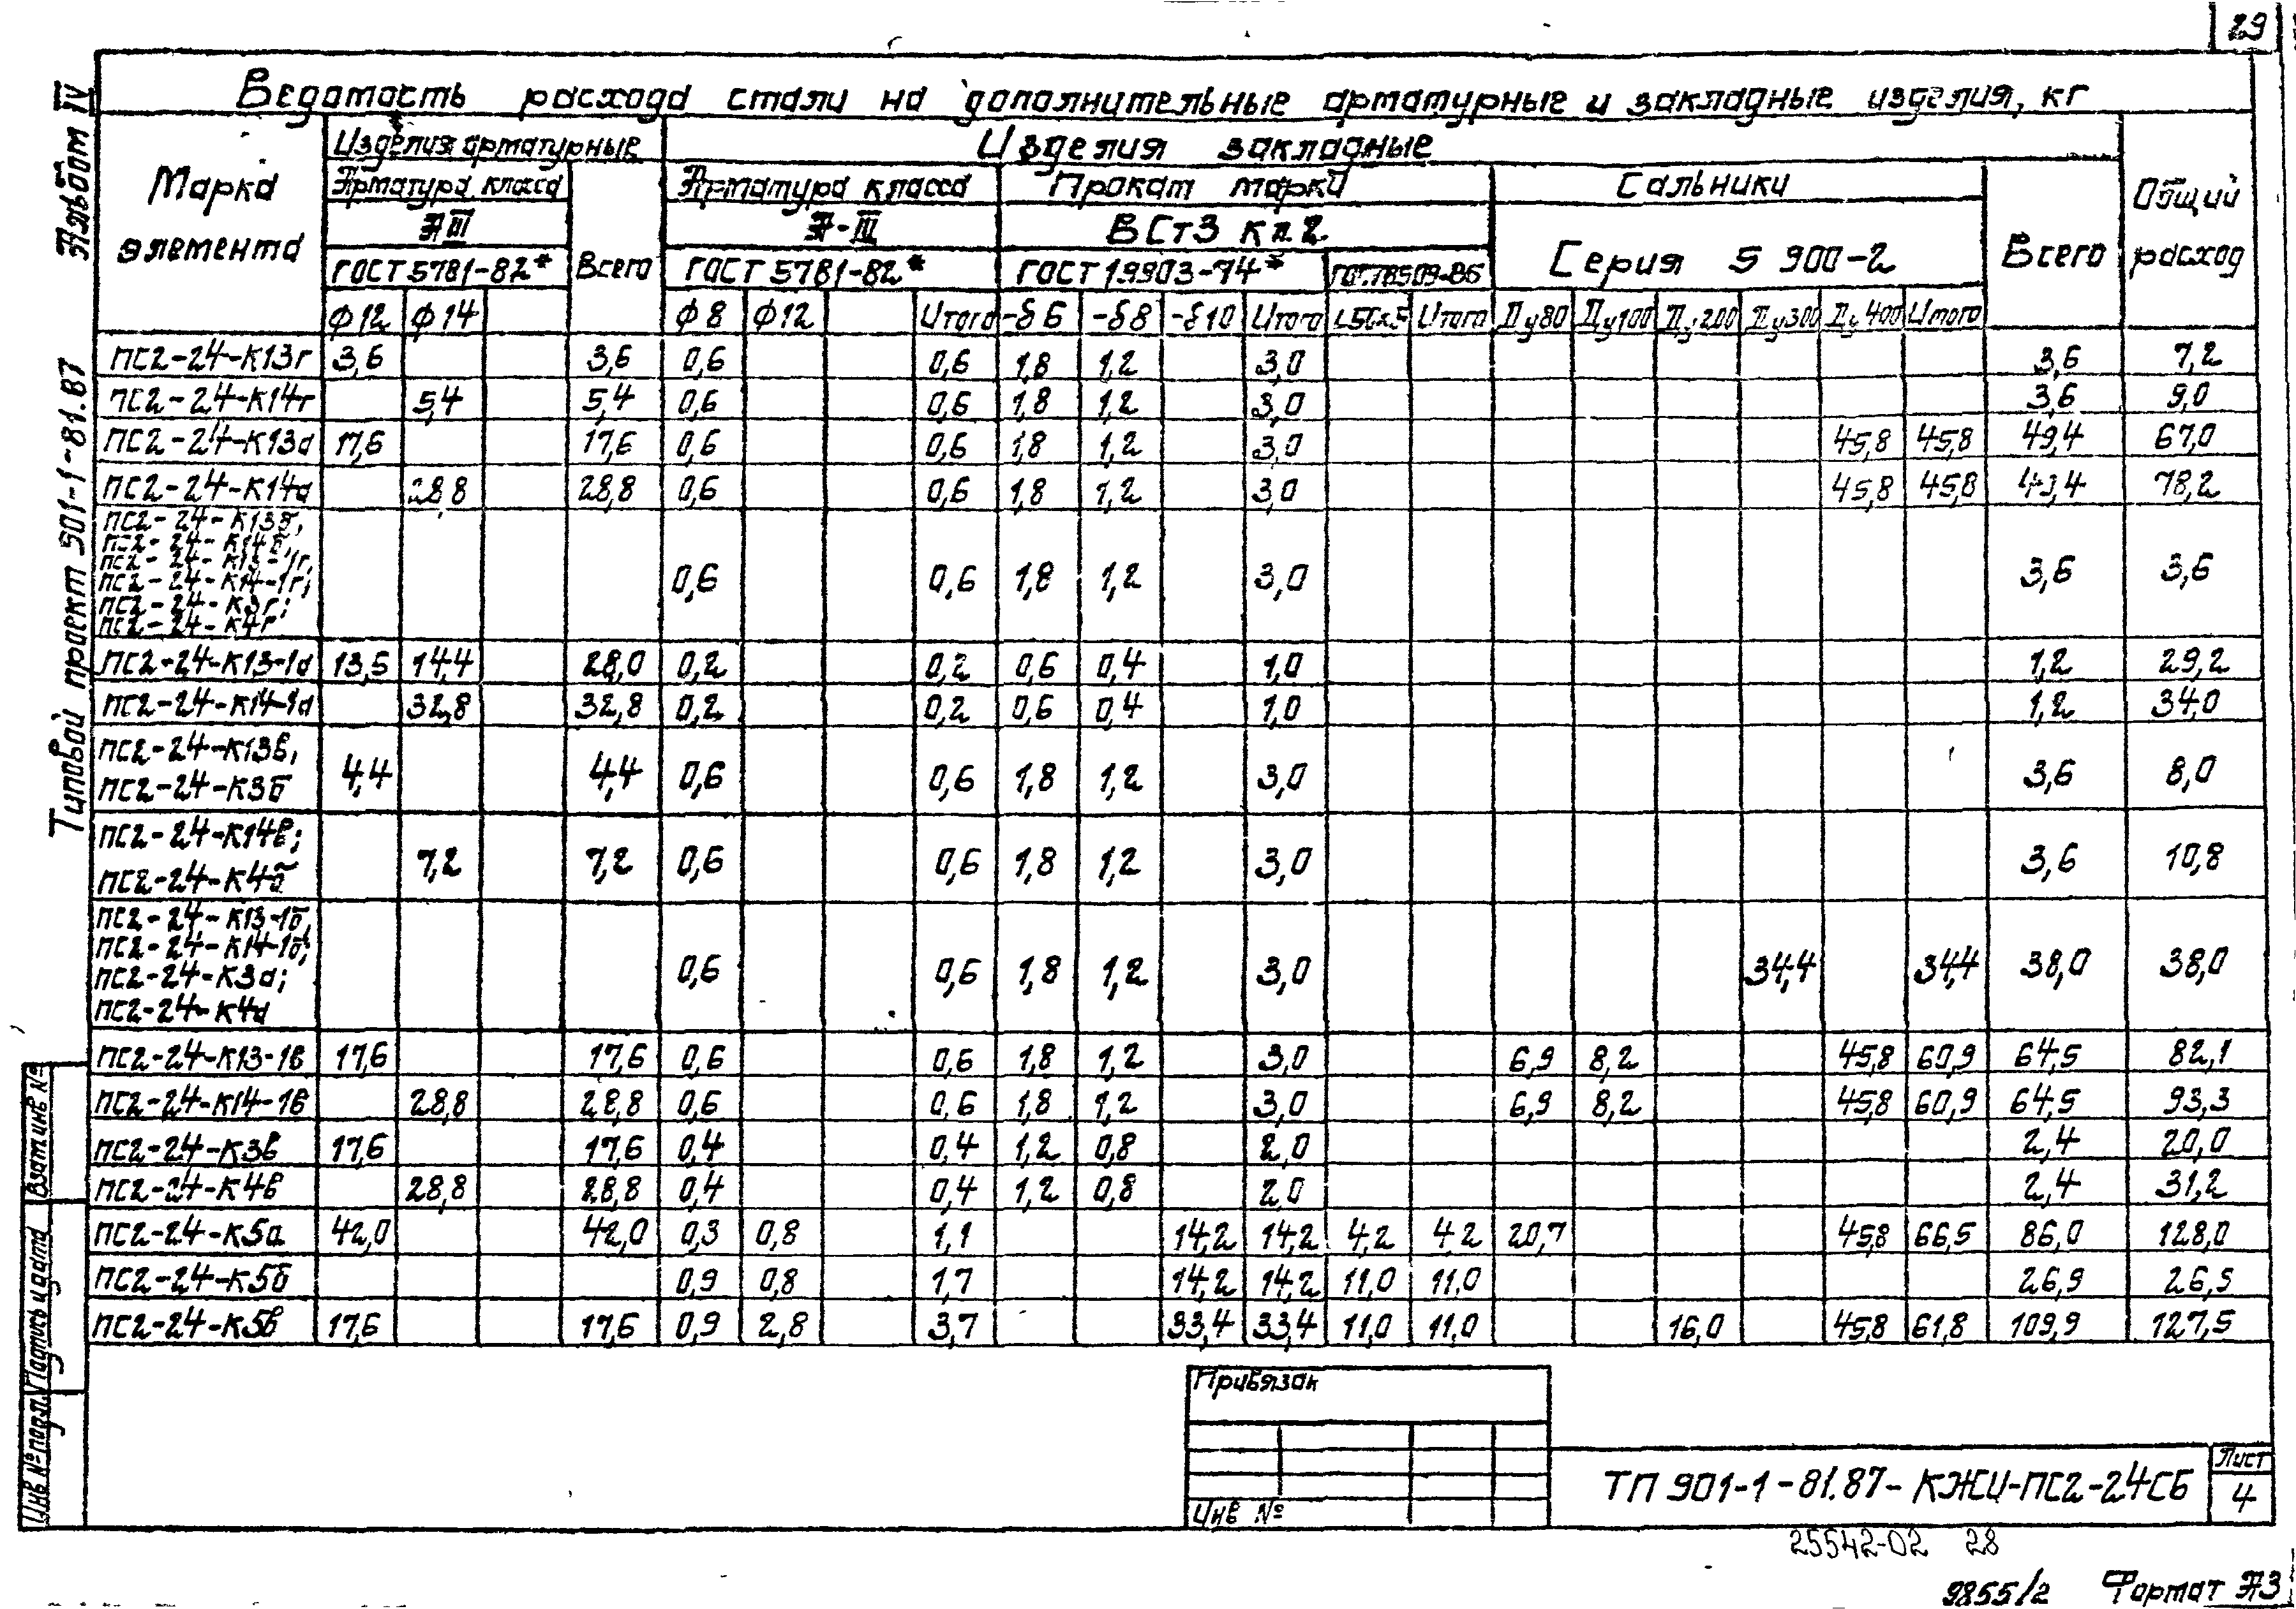 29
Ведомость расхода стали на дополнительные арматурные и закладные изделия, кг
Марка элемента
Изделия арматурные
Изделия закладные
Общий расход
Арматура класса
Арматура класса
Прокат марки
Сальники
АIII
А-III
ВСт3 кп2
Всего
ГОСТ 5781-82*
Всего
ГОСТ 5781-82*
ГОСТ 19903-74*
ГОСТ 8509-86
Серия 5 900-2
ф12 ф14 ф8 ф12 Итого -δ6 -δ8 -δ10 Итого L50x5 Итого Ду80 Ду100 Ду200 Ду300 Ду400 Итого
ПС2-24-К13г 3,6 3,6 0,6 0,6 1,8 1,2 3,0 3,6 7,2
ПС2-24-К14г 5,4 5,4 0,6 0,6 1,8 1,2 3,0 3,6 9,0
ПС2-24-К13а 17,6 17,6 0,6 0,6 1,8 1,2 3,0 45,8 45,8 49,4 67,0
ПС2-24-К14а 28,8 28,8 0,6 0,6 1,8 1,2 3,0 45,8 45,8 49,4 78,2
ПС2-24-К13б,
ПС2-24-К14б,
ПС2-24-К13-1г,
ПС2-24-К14-1г;
ПС2-24-К3г;
ПС2-24-К4г
0,6 0,6 1,8 1,2 3,0 3,6 3,6
ПС2-24-К13-1а 13,5 14,4 28,0 0,2 0,2 0,6 0,4 1,0 1,2 29,2
ПС2-24-К14-1а 32,8 32,8 0,2 0,2 0,6 0,4 1,0 1,2 34,0
ПС2-24-К13в,
ПС2-24-К3б
4,4 4,4 0,6 0,6 1,8 1,2 3,0 3,6 8,0
ПС2-24-К14в;
ПС2-24-К4б
7,2 7,2 0,6 0,6 1,8 1,2 3,0 3,6 10,8
ПС2-24-К13-1б,
ПС2-24-К14-1б;
ПС2-24-К3а;
ПС2-24-К4а
0,6 0,6 1,8 1,2 3,0 34,4 34,4 38,0 38,0
ПС2-24-К13-1в 17,6 17,6 0,6 0,6 1,8 1,2 3,0 6,9 8,2 45,8 60,9 64,5 82,1
ПС2-24-К14-1в 28,8 28,8 0,6 0,6 1,8 1,2 3,0 6,9 8,2 45,8 60,9 64,5 93,3
ПС2-24-К3в 17,6 17,6 0,4 0,4 1,2 0,8 2,0 2,4 20,0
ПС2-24-К4в 28,8 28,8 0,4 0,4 1,2 0,8 2,0 2,4 31,2
ПС2-24-К5а 42,0 42,0 0,3 0,8 1,1 14,2 14,2 4,2 4,2 20,7 45,8 66,5 86,0 128,0
ПС2-24-К5б 0,9 0,8 1,7 14,2 14,2 11,0 11,0 26,9 26,9
ПС2-24-К5в 17,6 17,6 0,9 2,8 3,7 33,4 33,4 11,0 11,0 16,0 45,8 61,8 109,9 127,5
Альбом IV
Типовой проект 901-1-81.87
Взам.инв №
Подпись и дата
Инв № подл.
Привязан
Инв №
ТП 901-1-81.87-КЖИ-ПС2-24СБ
Лист
4
25542-02 28
9855/2 Формат А3